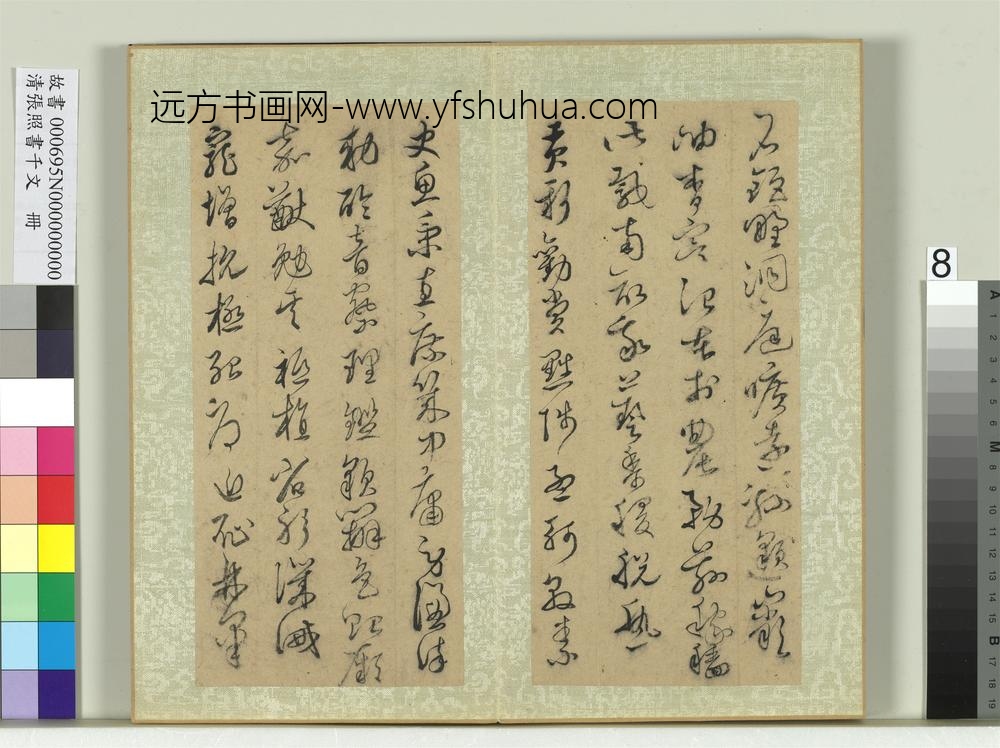 远方书画网-www.yfshuhua.com
故書 000695N000000000
清張照書千文 冊
石鉅野洞庭曠遠綿邈巖
岫杳冥治本於農務茲稼穡
俶載南畝我藝黍稷稅熟
貢新勸賞黜陟孟軻敦素
史魚秉直庶幾中庸勞謙謹
勅聆音察理鑑貌辨色貽厥
嘉猷勉其祗植省躬譏誡
寵增抗極殆辱近恥林皋幸
8
A 1 2 3 4 5 6 M 8 9 10 11 12 13 14 15 B 17 18 19